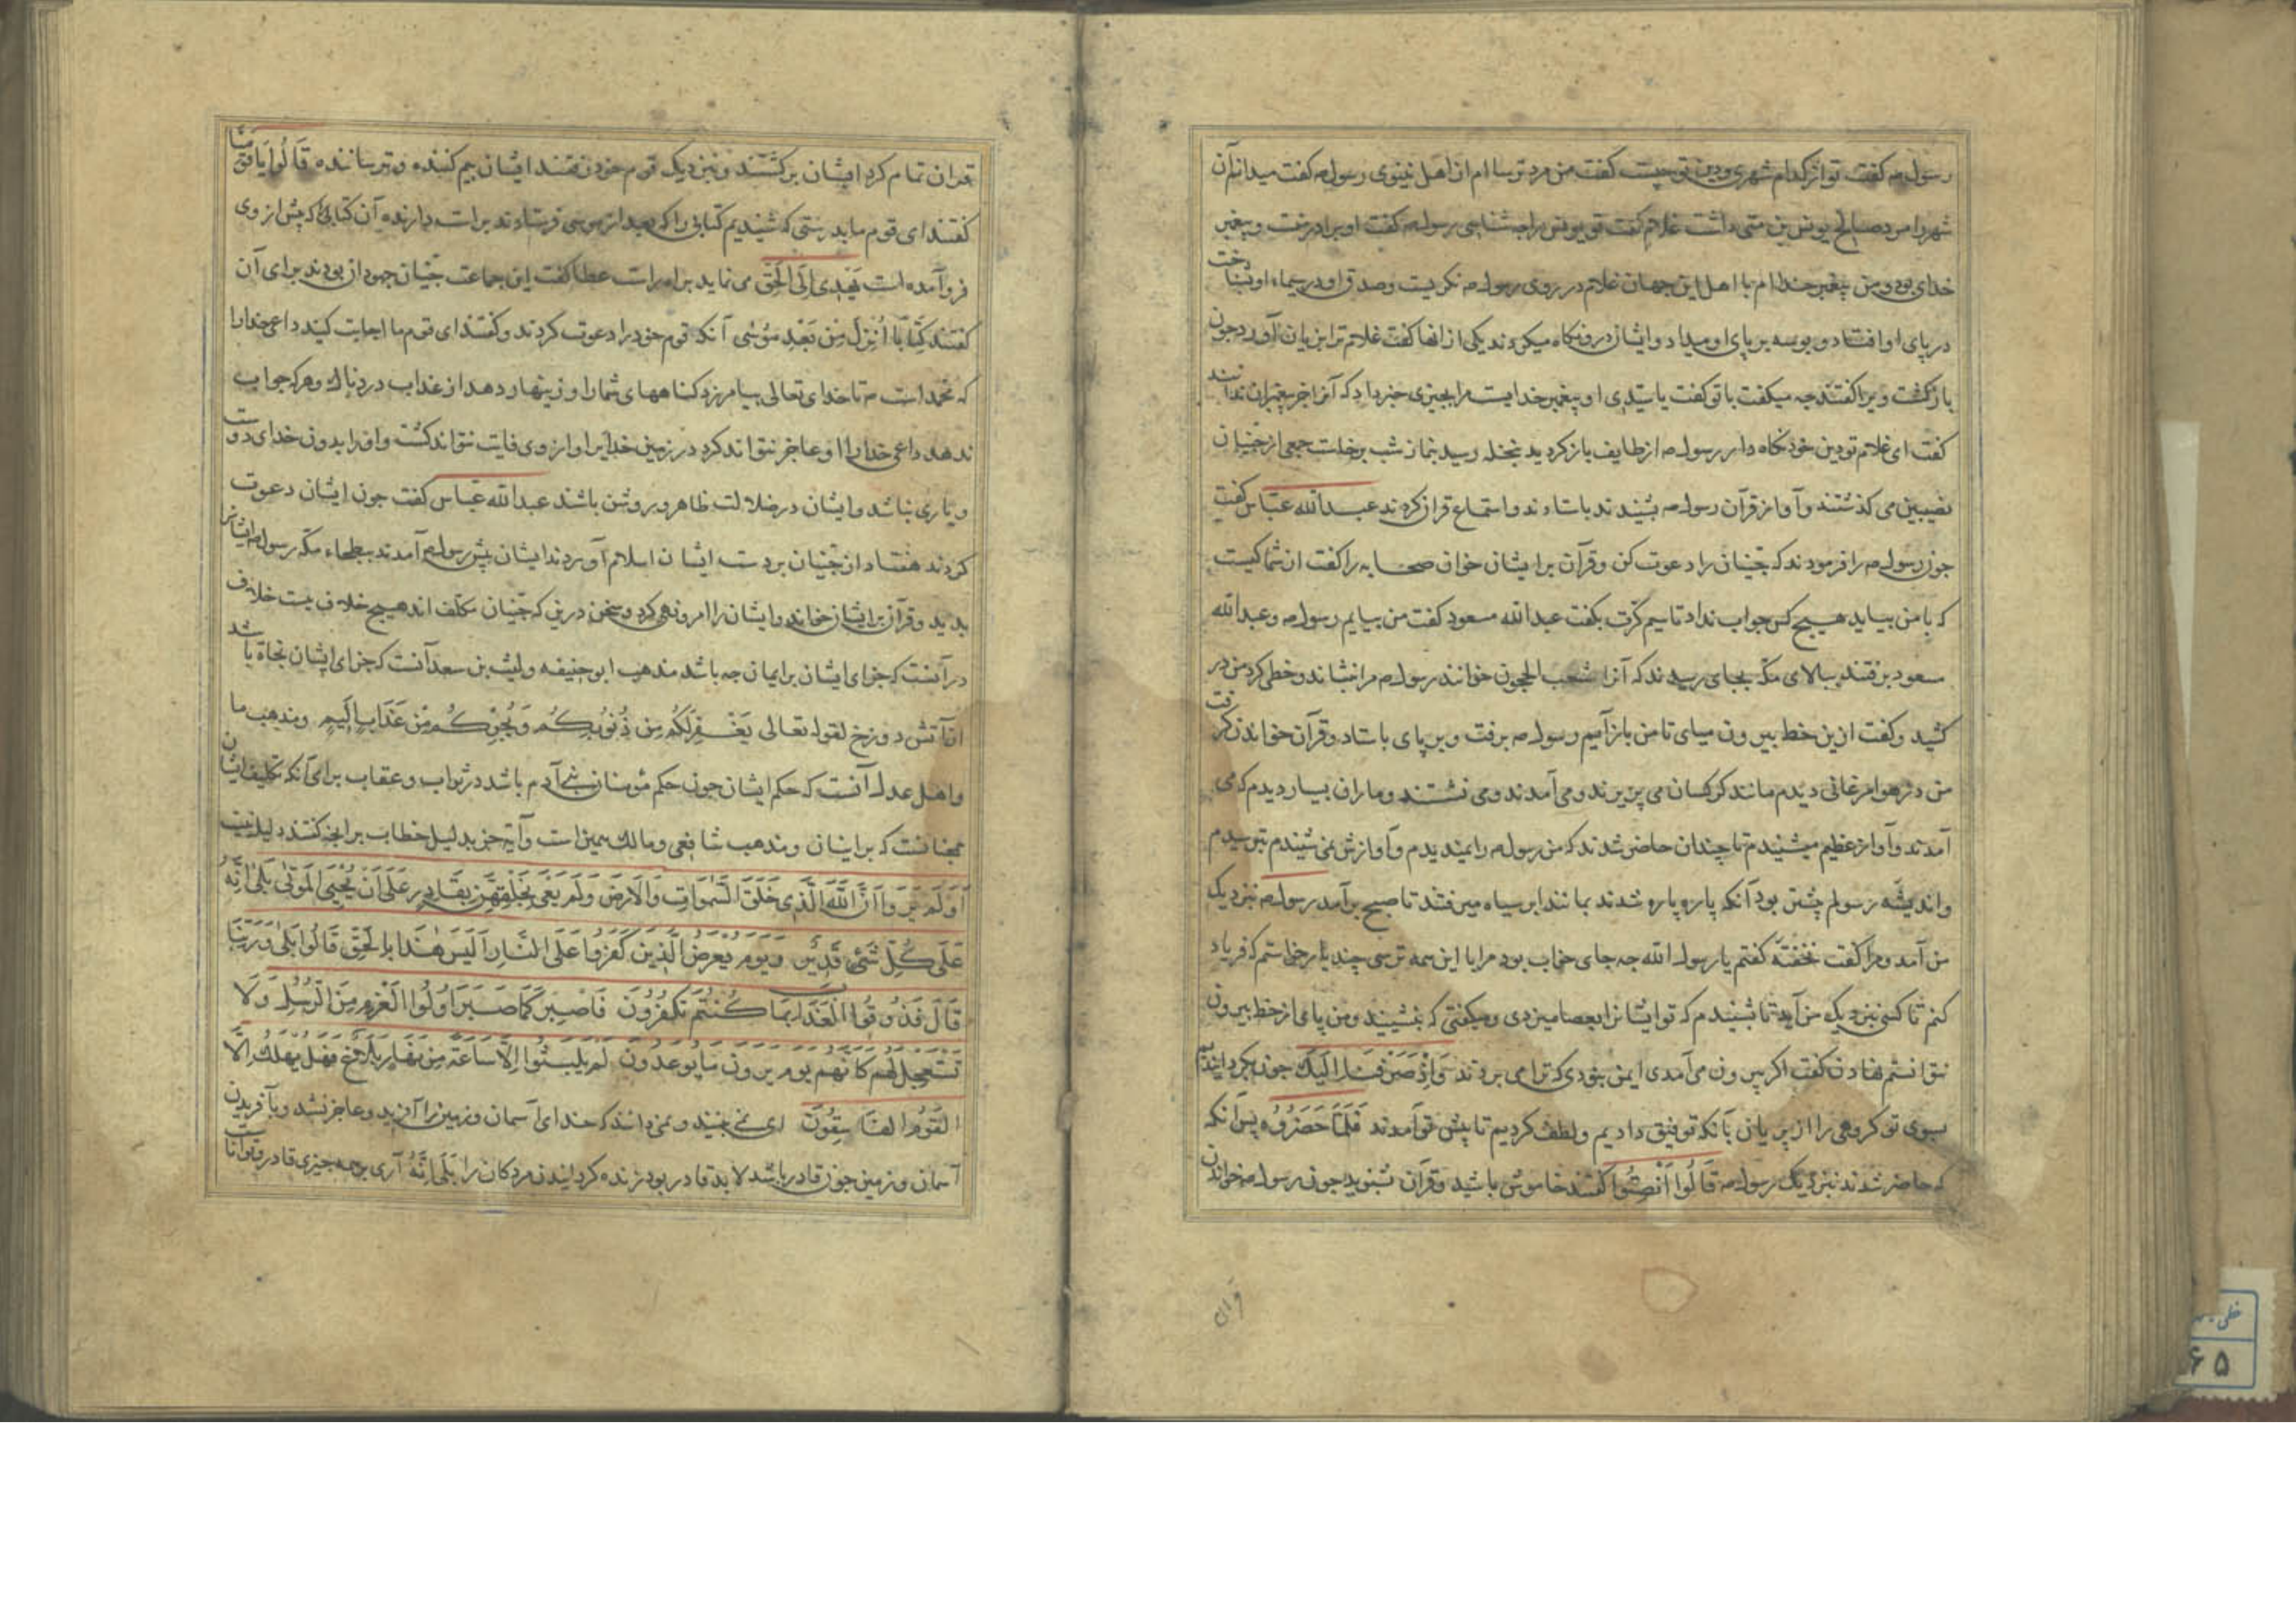 رسول صه گفت تو از کدام شهری و دین تو چیست گفت من مرد ترساام از اهل نینوی رسول صه گفت میدانم آن
شهر را مرد صالح یونس بن متی داشت غلام گفت تو یونس را چه شناسی رسول صه گفت او برادر منست و پیغمبر
خدای بود و من پیغمبر خداام با اهل این جهان غلام در روی رسول صه نکریست و صدق او در سیماء او بشناخت
در پای او افتاد و بوسه بر پای او میداد و ایشان درو نکاه میکردند یکی از انها گفت غلام ترا بزیان آورد چون
باز کشت ویرا کفتند چه میکفت با تو کفت یا سیدی او پیغمبر خدایست مرا بچیزی خبر داد که آنرا جز پیغمبران ندانند
کفت ای غلام تو دین خود نکاه دار رسول صه از طایف باز کردید بنخله رسید بنماز شب برخاست جمعی از جنیان
نصیبین می کذشتند و آواز قرآن رسول صه بشنیدند باستادند و استماع قران کردند عبدالله عباس کفت
چون رسول صه را فرمودند که جنیان را دعوت کن و قرآن بر ایشان خوان صحابه را کفت از شما کیست
که با من بیاید هیچ کس جواب نداد تا سیم کرت بکفت عبدالله مسعود کفت من بیایم رسول صه و عبدالله
مسعود برفتند ببالای مکه بجای رسیدند که آنرا شعب الحجون خوانند رسول صه مرا بنشاند و خطی کرد من در
کشید و کفت ازین خط بیرون میای تا من باز آمیم رسول صه برفت و بر پای باستاد و قرآن خواندن کرفت
من در هوا مرغانی دیدم مانند کرکسان می پریدند و می آمدند و می نشستند و ماران بسیار دیدم که می
آمدند و آواز عظیم میشنیدم تا چندان حاضر شدند که من رسول صه را نمیدیدم و آوازش نمی شنیدم بترسیدم
و اندیشه رسولم بیشتر بود آنکه پاره پاره شدند بمانند ابر سیاه میرفتند تا صبح برآمد رسول صه بنزدیک
من آمد و مرا کفت نخفتهٔ کفتم یا رسول الله چه جای خواب بود مرا با این همه ترسی چند بار خواستم که فریاد
کنم تا کسی بنزدیک من آید تا بشنیدم که تو ایشانرا بعصا میزدی و میکفتی که بنشینید و من پای از خط بیرون
نتوانستم نهادن کفت اکر بیرون می آمدی ایمن نبودی که ترا می بردند وَاِذْ صَرَفْنَا اِلَیْکَ چون بکردانیدیم
بسوی تو کروهی را از پریان بآنکه توفیق دادیم و لطف کردیم تا پیش تو آمدند فَلَمَّا حَضَرُوهُ پس آنکه
که حاضر شدند بنزدیک رسول صه قَالُوا اَنْصِتُوا کفتند خاموش باشید و قرآن بشنوید چون رسول صه خواندن
قران
قران تمام کرد ایشان برکشتند و بنزدیک قوم خود رفتند ایشان بیم کننده و ترساننده قَالُوا یَا قَوْمَنَا
کفتند ای قوم ما بدرستی که شنیدیم کتابی را که بعد از موسی فرستادند براست دارنده آن کتابی که پیش از وی
فروآمده است یَهْدِی اِلَی الْحَقِّ می نماید براه راست عطا کفت این جماعت جنیان جهودان بودند برای آن
کفتند کِتَابًا اُنْزِلَ مِنْ بَعْدِ مُوسٰی آنکه قوم خود را دعوت کردند و کفتند ای قوم ما اجابت کنید داعی خدارا
که محمد است صه تا خدای تعالی بیامرزد کناههای شما را و زینهار دهد از عذاب دردناک و هر که جواب
ندهد داعی خدارا او عاجز نتواند کرد در زمین خدایرا و از وی فایت نتواند کشت و او را بدون خدای دوست
و یاری نباشد و ایشان در ضلالت ظاهر و روشن باشند عبدالله عباس کفت چون ایشان دعوت
کردند هفتاد از جنیان بر دست ایشان اسلام آوردند ایشان پیش رسول صه آمدند ببطحاء مکه رسول صه ایشانرا
بدید و قرآن بر ایشان خواند و ایشان را امر و نهی کرد و سخن درین که جنیان مکلف اند هیچ خلاف نیست خلاف
در آنست که جزای ایشان بر ایمان چه باشد مذهب ابو حنیفه و لیث بن سعد آنست که جزای ایشان نجاة باشد
از آتش دوزخ لقوله تعالی یَغْفِرْلَکُمْ مِنْ ذُنُوبِکُمْ وَیُجِرْکُمْ مِنْ عَذَابٍ اَلِیمٍ و مذهب ما
و اهل عدل آنست که حکم ایشان چون حکم مؤمنان بنی آدم باشد در ثواب و عقاب برای آنکه تکلیف ایشان
همچنانست که بر ایشان و مذهب شافعی و مالک همین است و آیه جز بدلیل خطاب بر آنچه کفتند دلیل نیست
اَوَلَمْ یَرَوْا اَنَّ اللّٰهَ الَّذِی خَلَقَ السَّمٰوَاتِ وَالْاَرْضَ وَلَمْ یَعْیَ بِخَلْقِهِنَّ بِقَادِرٍ عَلٰی اَنْ یُحْیِیَ الْمَوْتٰی بَلٰی اِنَّهُ
عَلٰی کُلِّ شَیْءٍ قَدِیرٌ وَیَوْمَ یُعْرَضُ الَّذِینَ کَفَرُوا عَلَی النَّارِ اَلَیْسَ هٰذَا بِالْحَقِّ قَالُوا بَلٰی وَرَبِّنَا
قَالَ فَذُوقُوا الْعَذَابَ بِمَا کُنْتُمْ تَکْفُرُونَ فَاصْبِرْ کَمَا صَبَرَ اُولُوا الْعَزْمِ مِنَ الرُّسُلِ وَلَا
تَسْتَعْجِلْ لَهُمْ کَاَنَّهُمْ یَوْمَ یَرَوْنَ مَا یُوعَدُونَ لَمْ یَلْبَثُوا اِلَّا سَاعَةً مِنْ نَهَارٍ بَلَاغٌ فَهَلْ یُهْلَکُ اِلَّا
الْقَوْمُ الْفَاسِقُونَ ای نمی بینند و نمی دانند که خدای آسمان و زمین را آفرید و عاجز نشد و بآفریدن
آسمان و زمین چون قادر باشد لابد قادر بود زنده کردانیدن مردکان را بَلٰی اِنَّهُ آری بر همه چیزی قادر و تواناست
خطی
۶۵